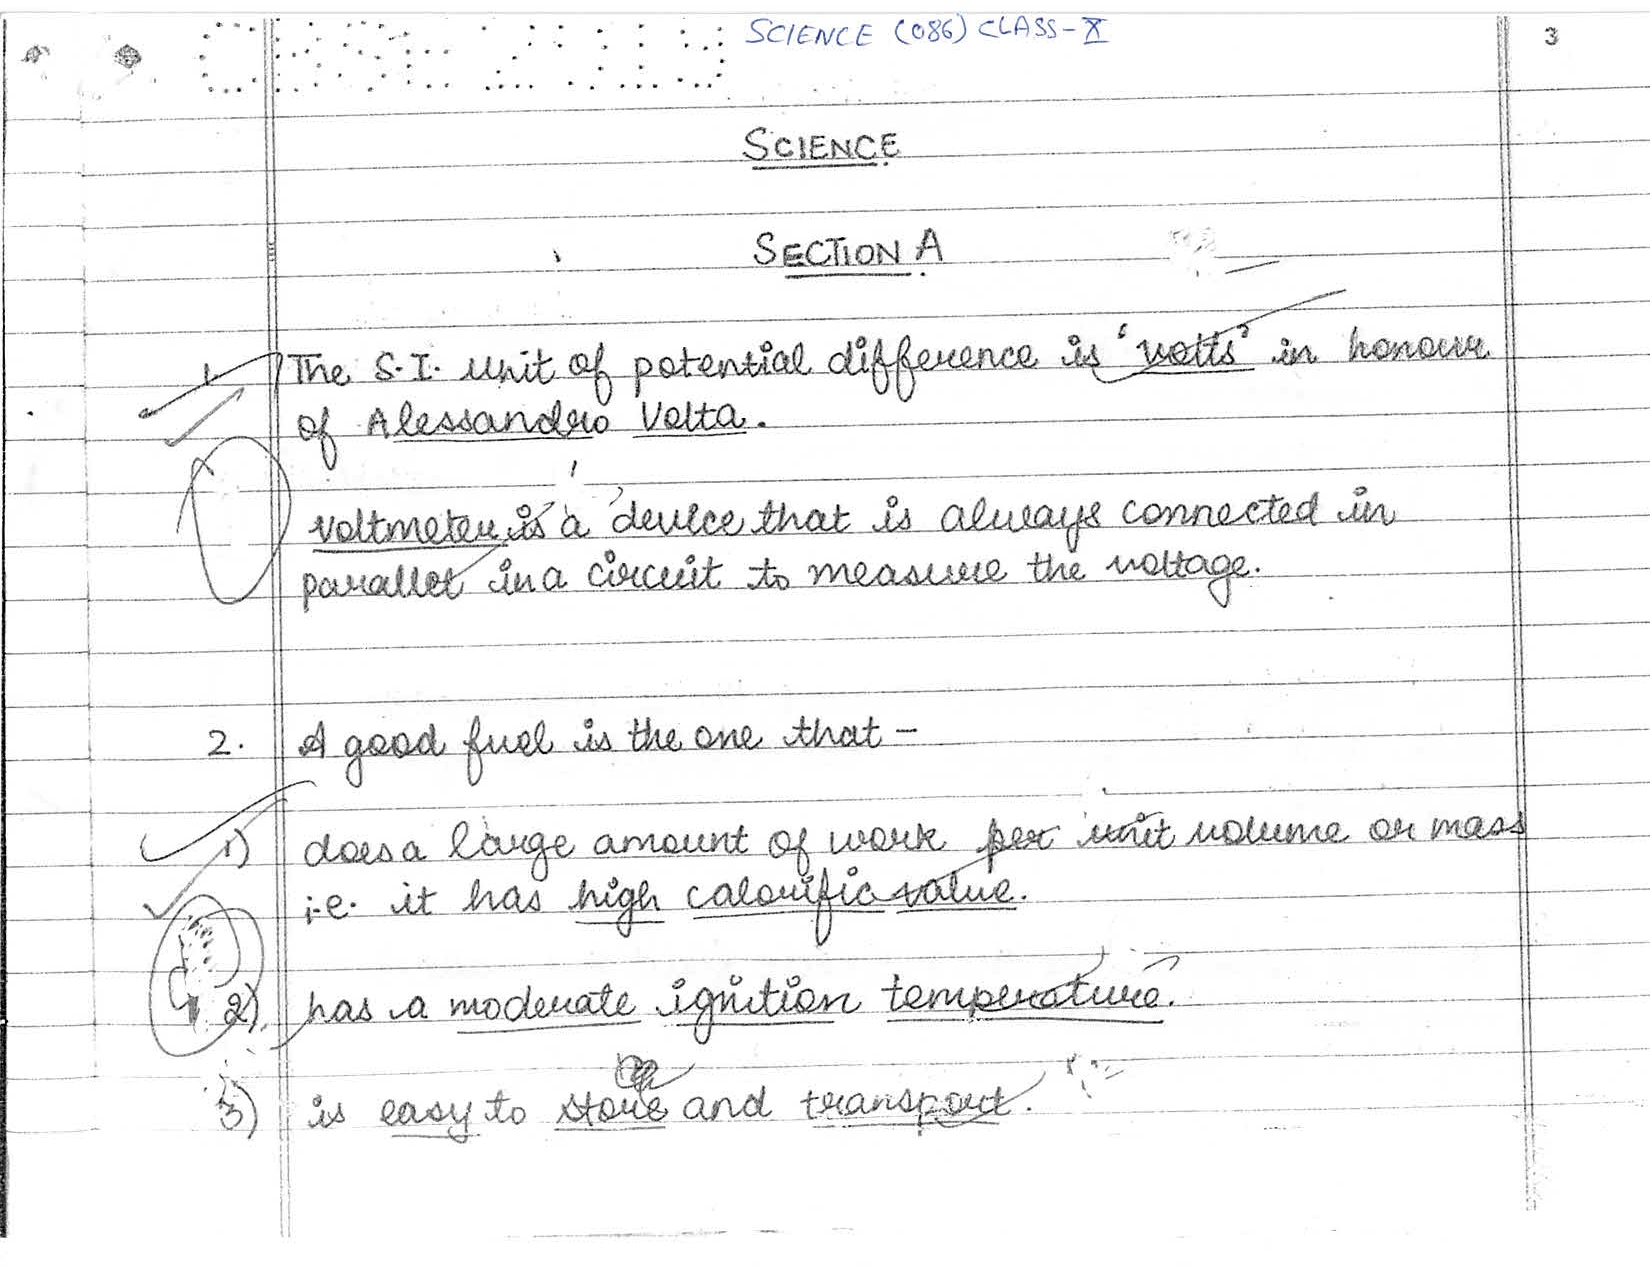 SCIENCE (086) CLASS-X
3
CBSE 2019
SCIENCE
SECTION A
1. The S.I. unit of potential difference is 'volts' in honour
of Alessandro Volta.
voltmeter is a device that is always connected in
parallel in a circuit to measure the voltage.
2. A good fuel is the one that –
1) does a large amount of work per unit volume or mass
i.e. it has high calorific value.
2) has a moderate ignition temperature.
3) is easy to store and transport.